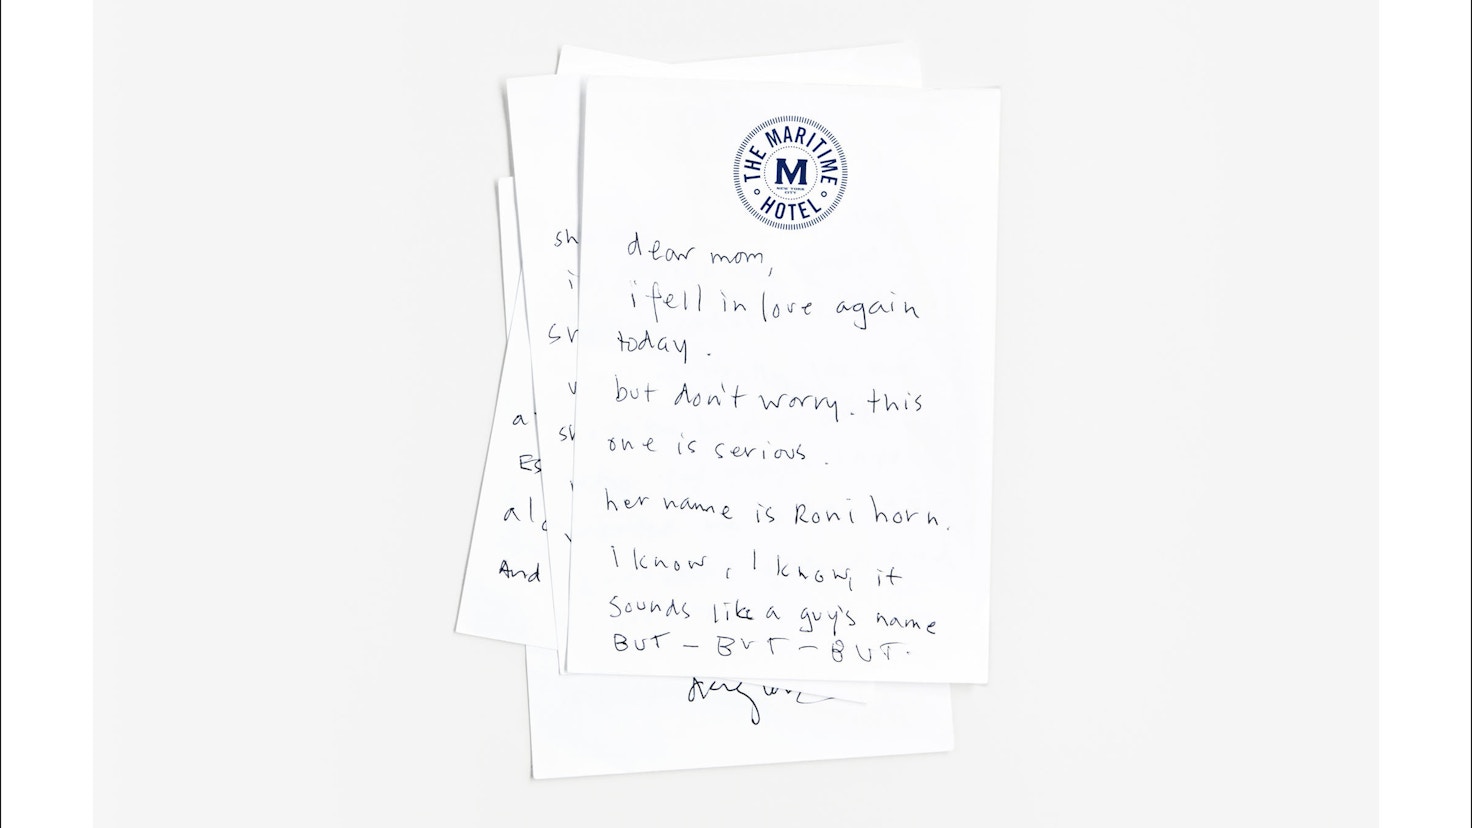 THE MARITIME HOTEL
M
NEW YORK
CITY
dear mom,
i fell in love again
today.
but don't worry. this
one is serious.
her name is Roni horn.
i know, I know, it
sounds like a guy's name
BUT – BUT – BUT.
sh
i
sh
a
Es
And